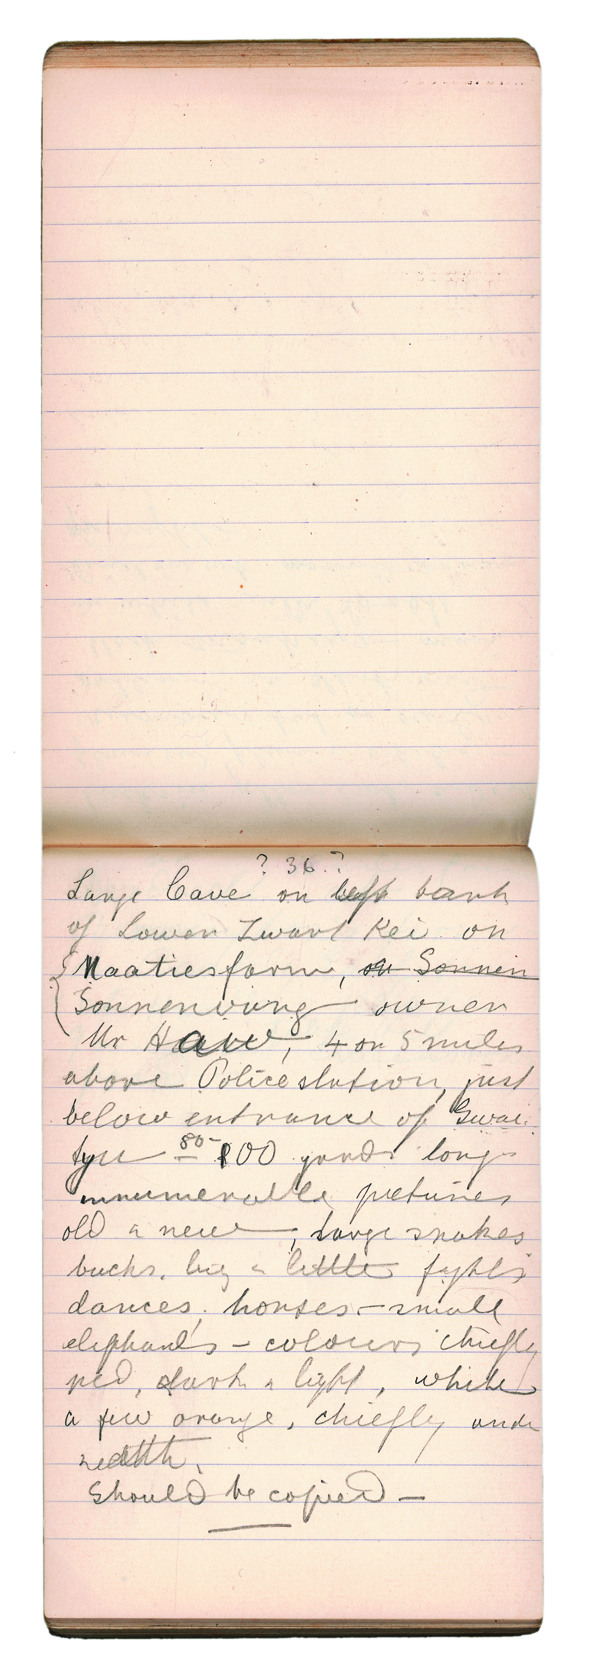 ? 36 ?
Large Cave on left bank
of Lower Zwart Kei on
Maatiesfarm, on Sonnen
Sonnenvung owner
Mr Haw, 4 or 5 miles
above Police station, just
below entrance of Gwai
tyu 80- 100 yards long
innumerable pictures
old & new, large snakes
bucks, big & little fights
dances, horses - small
elephants - colours chiefly
red, dark & light, white
a few orange, chiefly unde
neath.
Should be copied -